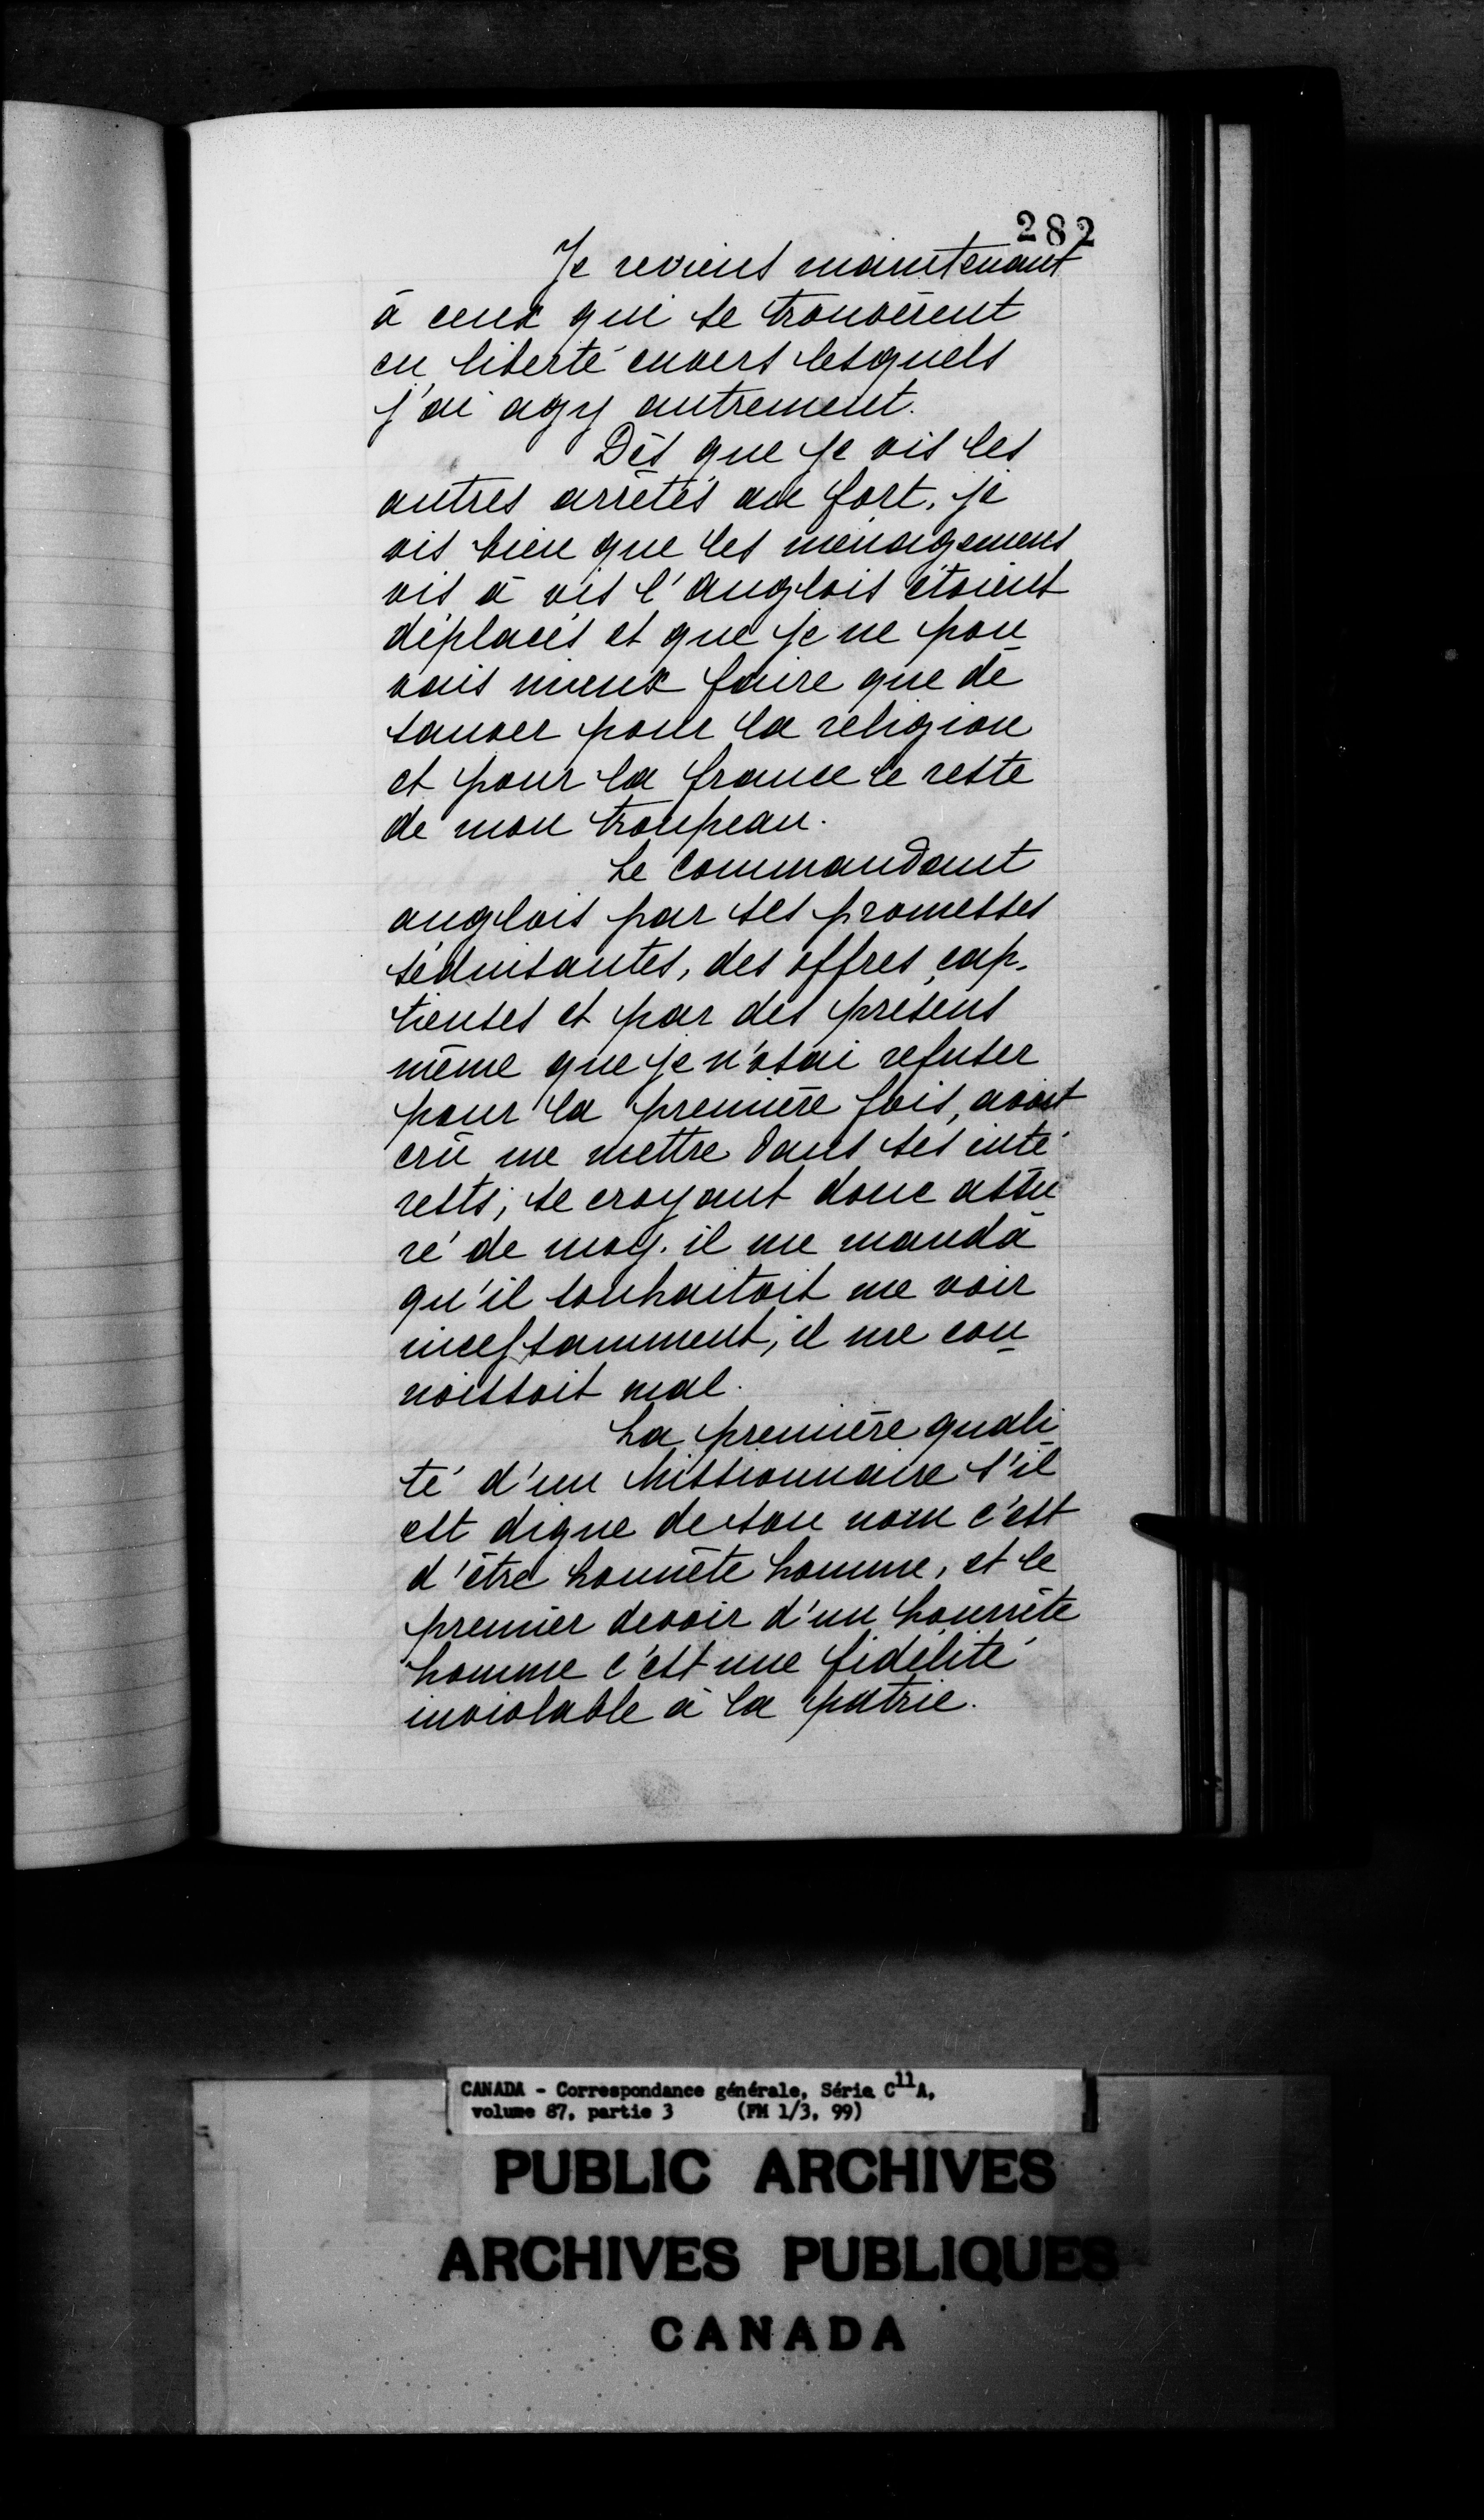 282
Je reviens maintenant
à ceux qui se trouvèrent
en liberté envers lesquels
j'ai agy autrement.
Dès que je vis les
autres arrêtés au fort, je
vis bien que les ménagemens
vis à vis l'anglois étoient
déplacés et que je ne pou
vais mieux faire que de
sauver pour la religion
et pour la france le reste
de mon troupeau.
Le Commandant
anglois par ses promesses
séduisantes, des offres cap-
tieuses et par des présens
même que je n'osai refuser
pour la première fois, avait
crû me mettre dans ses inté
rests; se croyant donc assu
ré de moy. il me manda
qu'il souhaitoit me voir
incessamment, il me con
noissoit mal.
La première quali
té d'un Missionnaire s'il
est digne de son nom c'est
d'être honnête homme, et le
premier devoir d'un honnête
homme c'est une fidélité
inviolable à la patrie.
CANADA - Correspondance générale, Série C11A,
volume 87, partie 3 (FM 1/3, 99)
PUBLIC ARCHIVES
ARCHIVES PUBLIQUES
CANADA